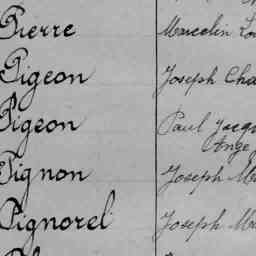 Pierre Marcelin
Pigeon Joseph Cha
Pigeon Paul Jacqu
Ange
Pignon Joseph Ma
Pignorel Joseph Ma